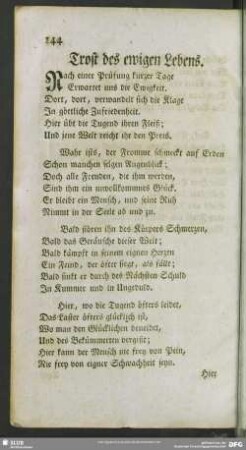 144
Trost des ewigen Lebens.
Nach einer Prüfung kurzer Tage
Erwartet uns die Ewigkeit.
Dort, dort, verwandelt sich die Klage
In göttliche Zufriedenheit.
Hier übt die Tugend ihren Fleiß;
Und jene Welt reicht ihr den Preis.
Wahr ists, der Fromme schmeckt auf Erden
Schon manchen selgen Augenblick;
Doch alle Freuden, die ihm werden,
Sind ihm ein unvollkommnes Glück.
Er bleibt ein Mensch, und seine Ruh
Nimmt in der Seele ab und zu.
Bald stören ihn des Körpers Schmerzen,
Bald das Geräusche dieser Welt;
Bald kämpft in seinem eignen Herzen
Ein Feind, der öfter siegt, als fällt;
Bald sinkt er durch des Nächsten Schuld
In Kummer und in Ungeduld.
Hier, wo die Tugend öfters leidet,
Das Laster öfters glücklich ist,
Wo man den Glücklichen beneidet,
Und des Bekümmerten vergißt;
Hier kann der Mensch nie frey von Pein,
Nie frey von eigner Schwachheit seyn.
Hier
SLUB